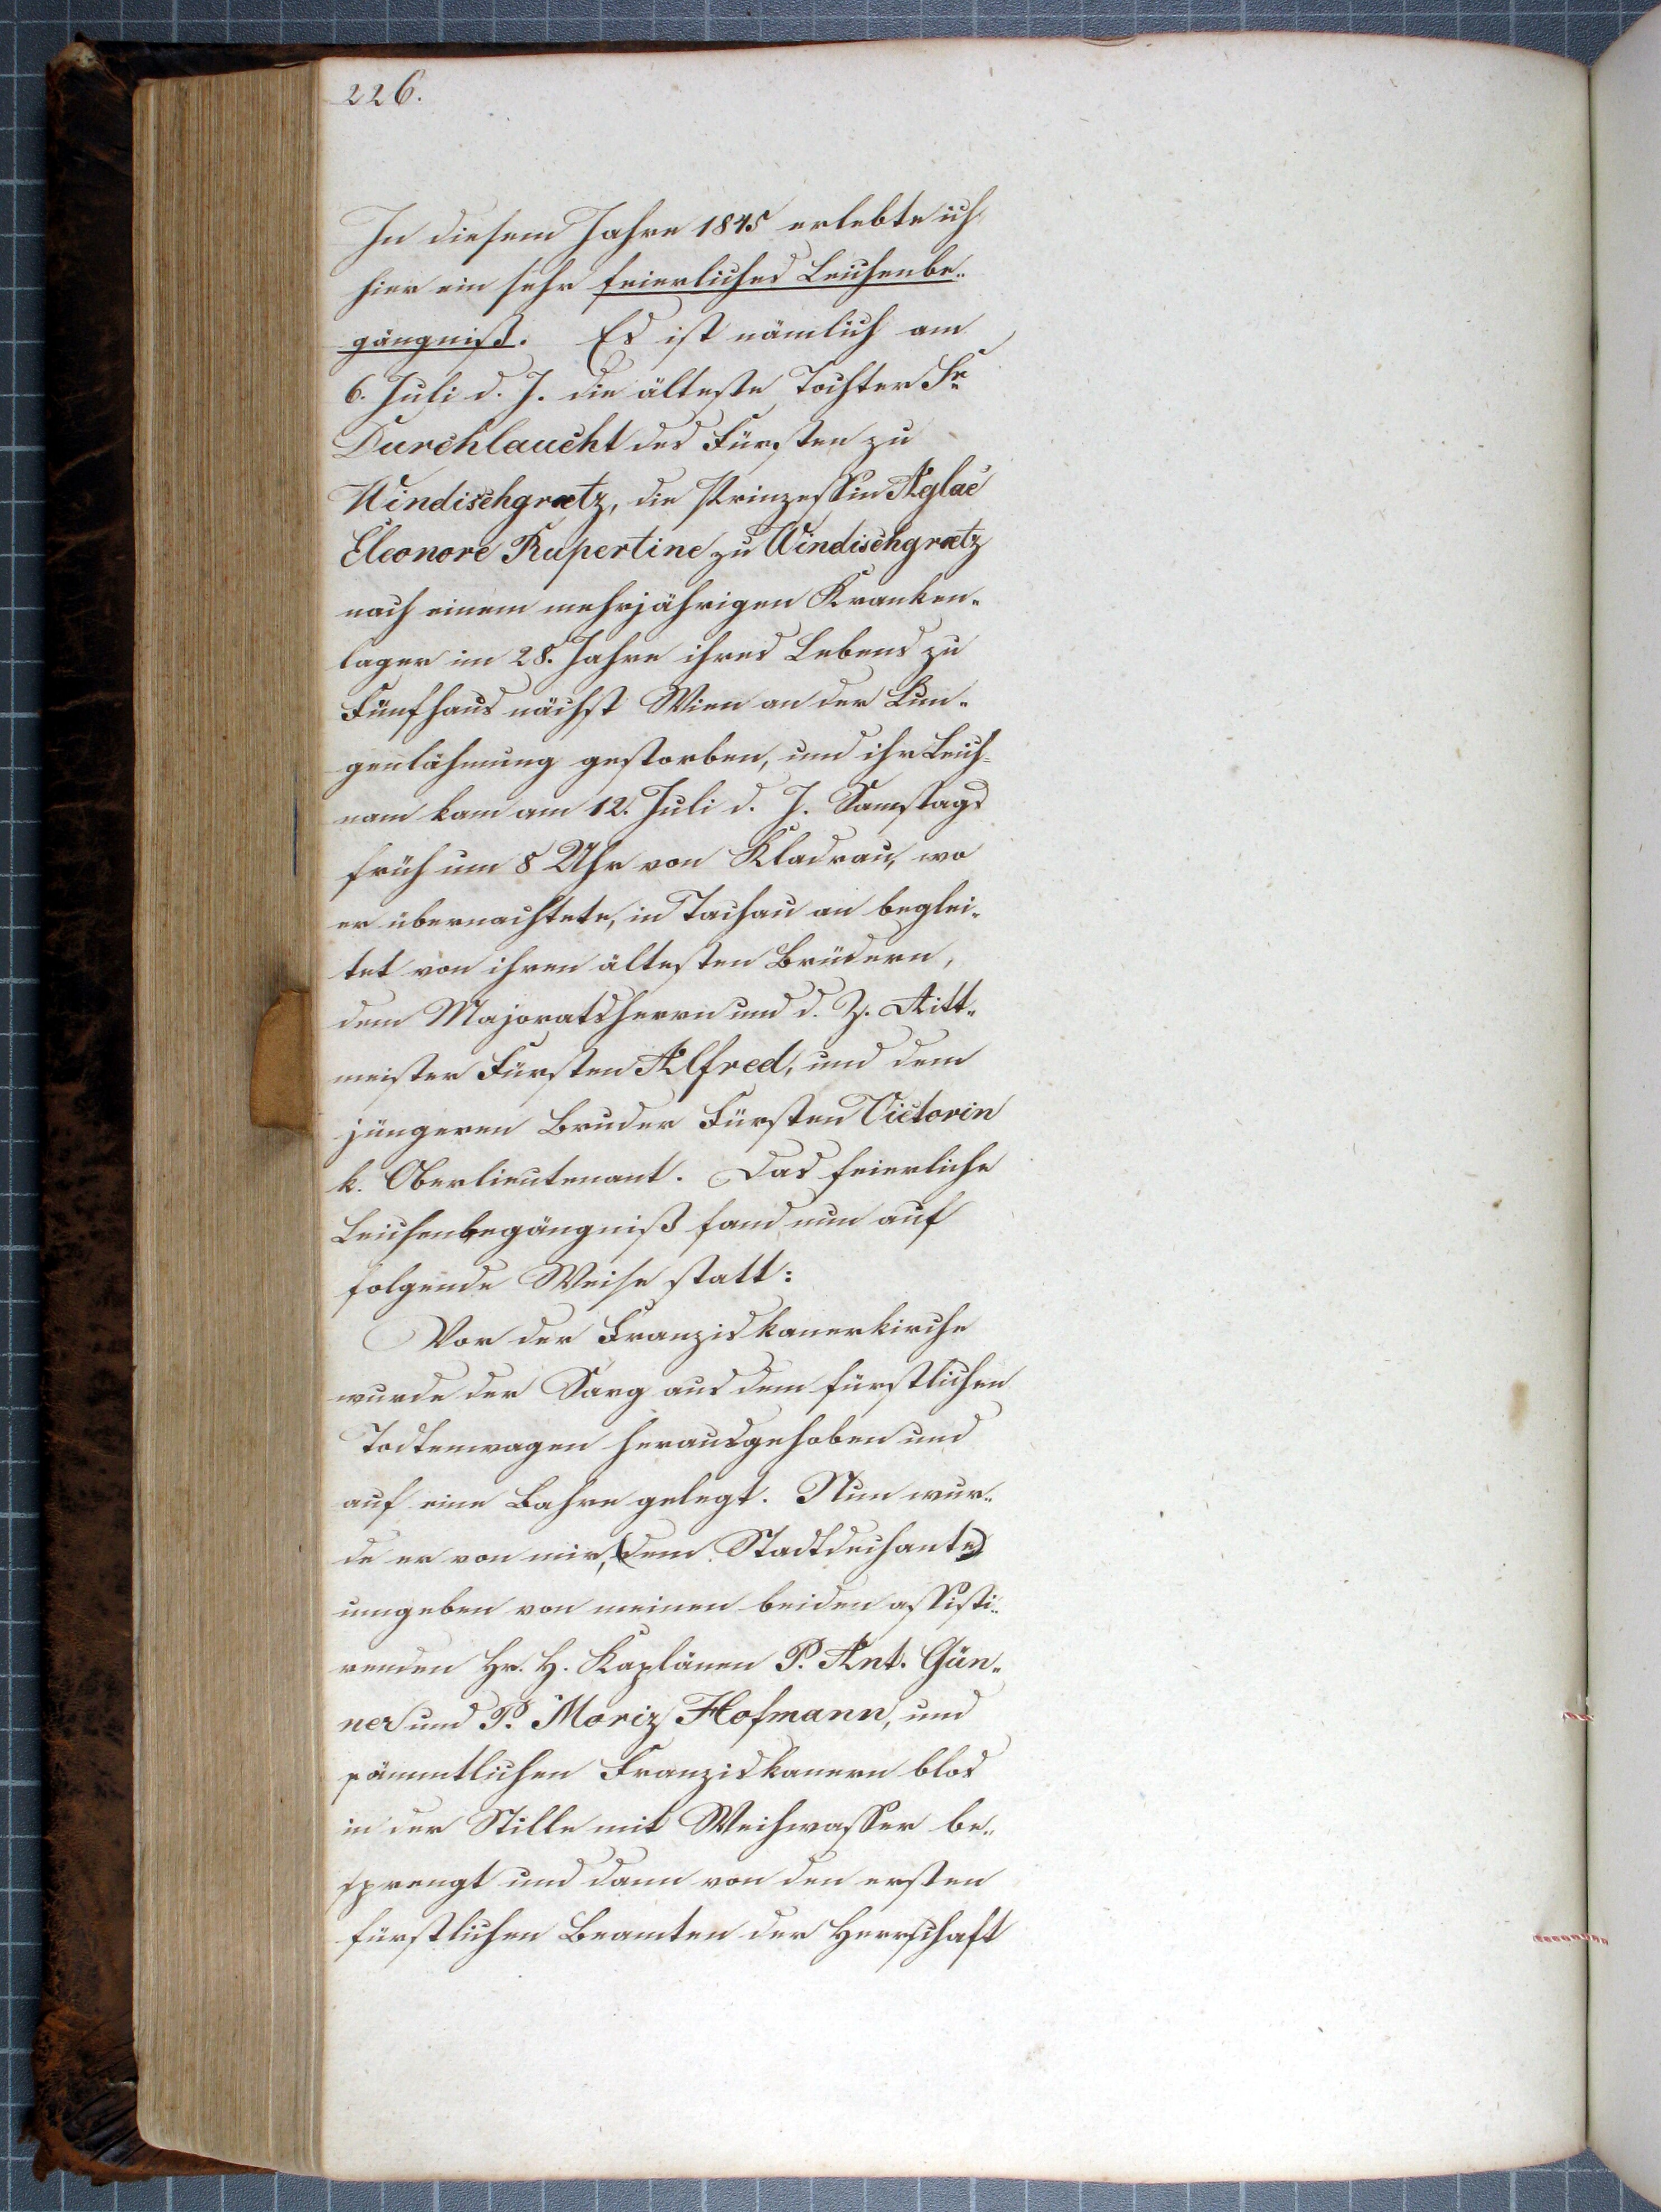 226.
In diesem Jahre 1845 erlebte ich
hier ein sehr feierliches Leichenbe„
gängniß. Es ist nämlich am
6. Juli d. J. die älteste Tochter Sr
Durchlaucht des Fürsten zu
Windischgraetz, die Prinzessin Aglaë
Eleonore Rupertine zu Windischgraetz
nach einem mehrjährigen Kranken„
lager im 28. Jahre ihres Lebens zu
Fünfhaus nächst Wien an der Lun„
genlähmung gestorben, und ihr Leich„
nam kam am 12. Juli d. J. Samstags
früh um 8 Uhr von Kladrau, wo
er übernachtete, in Tachau an beglei„
tet von ihren ältesten Brüdern,
dem Majoratsherrn und d. Z. Ritt„
meister Fürsten Alfred, und dem
jüngeren Bruder Fürsten Victorin
k. Oberlieutenant. Das feierliche
Leichenbegängniß fand nun auf
folgende Weise statt:
Vor der Franziskanerkirche
wurde der Sarg aus dem fürstlichen
Todtenwagen herausgehoben und
auf eine Bahre gelegt. Nun wur„
de er von mir, (dem Stadtdechante)
umgeben von meinen beiden assisti„
renden Hr. H. Kaplänen P. Ant. Gün„
ner und P. Moriz Hofmann, und
sämmtlichen Franziskanern blos
in der Stille mit Weihwasser be„
sprengt und dann von den ersten
fürstlichen Beamten der Herrschaft